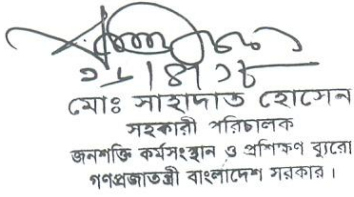 মোঃ সাহাদাত হোসেন
সহকারী পরিচালক
জনশক্তি কর্মসংস্থান ও প্রশিক্ষণ ব্যুরো
গণপ্রজাতন্ত্রী বাংলাদেশ সরকার।